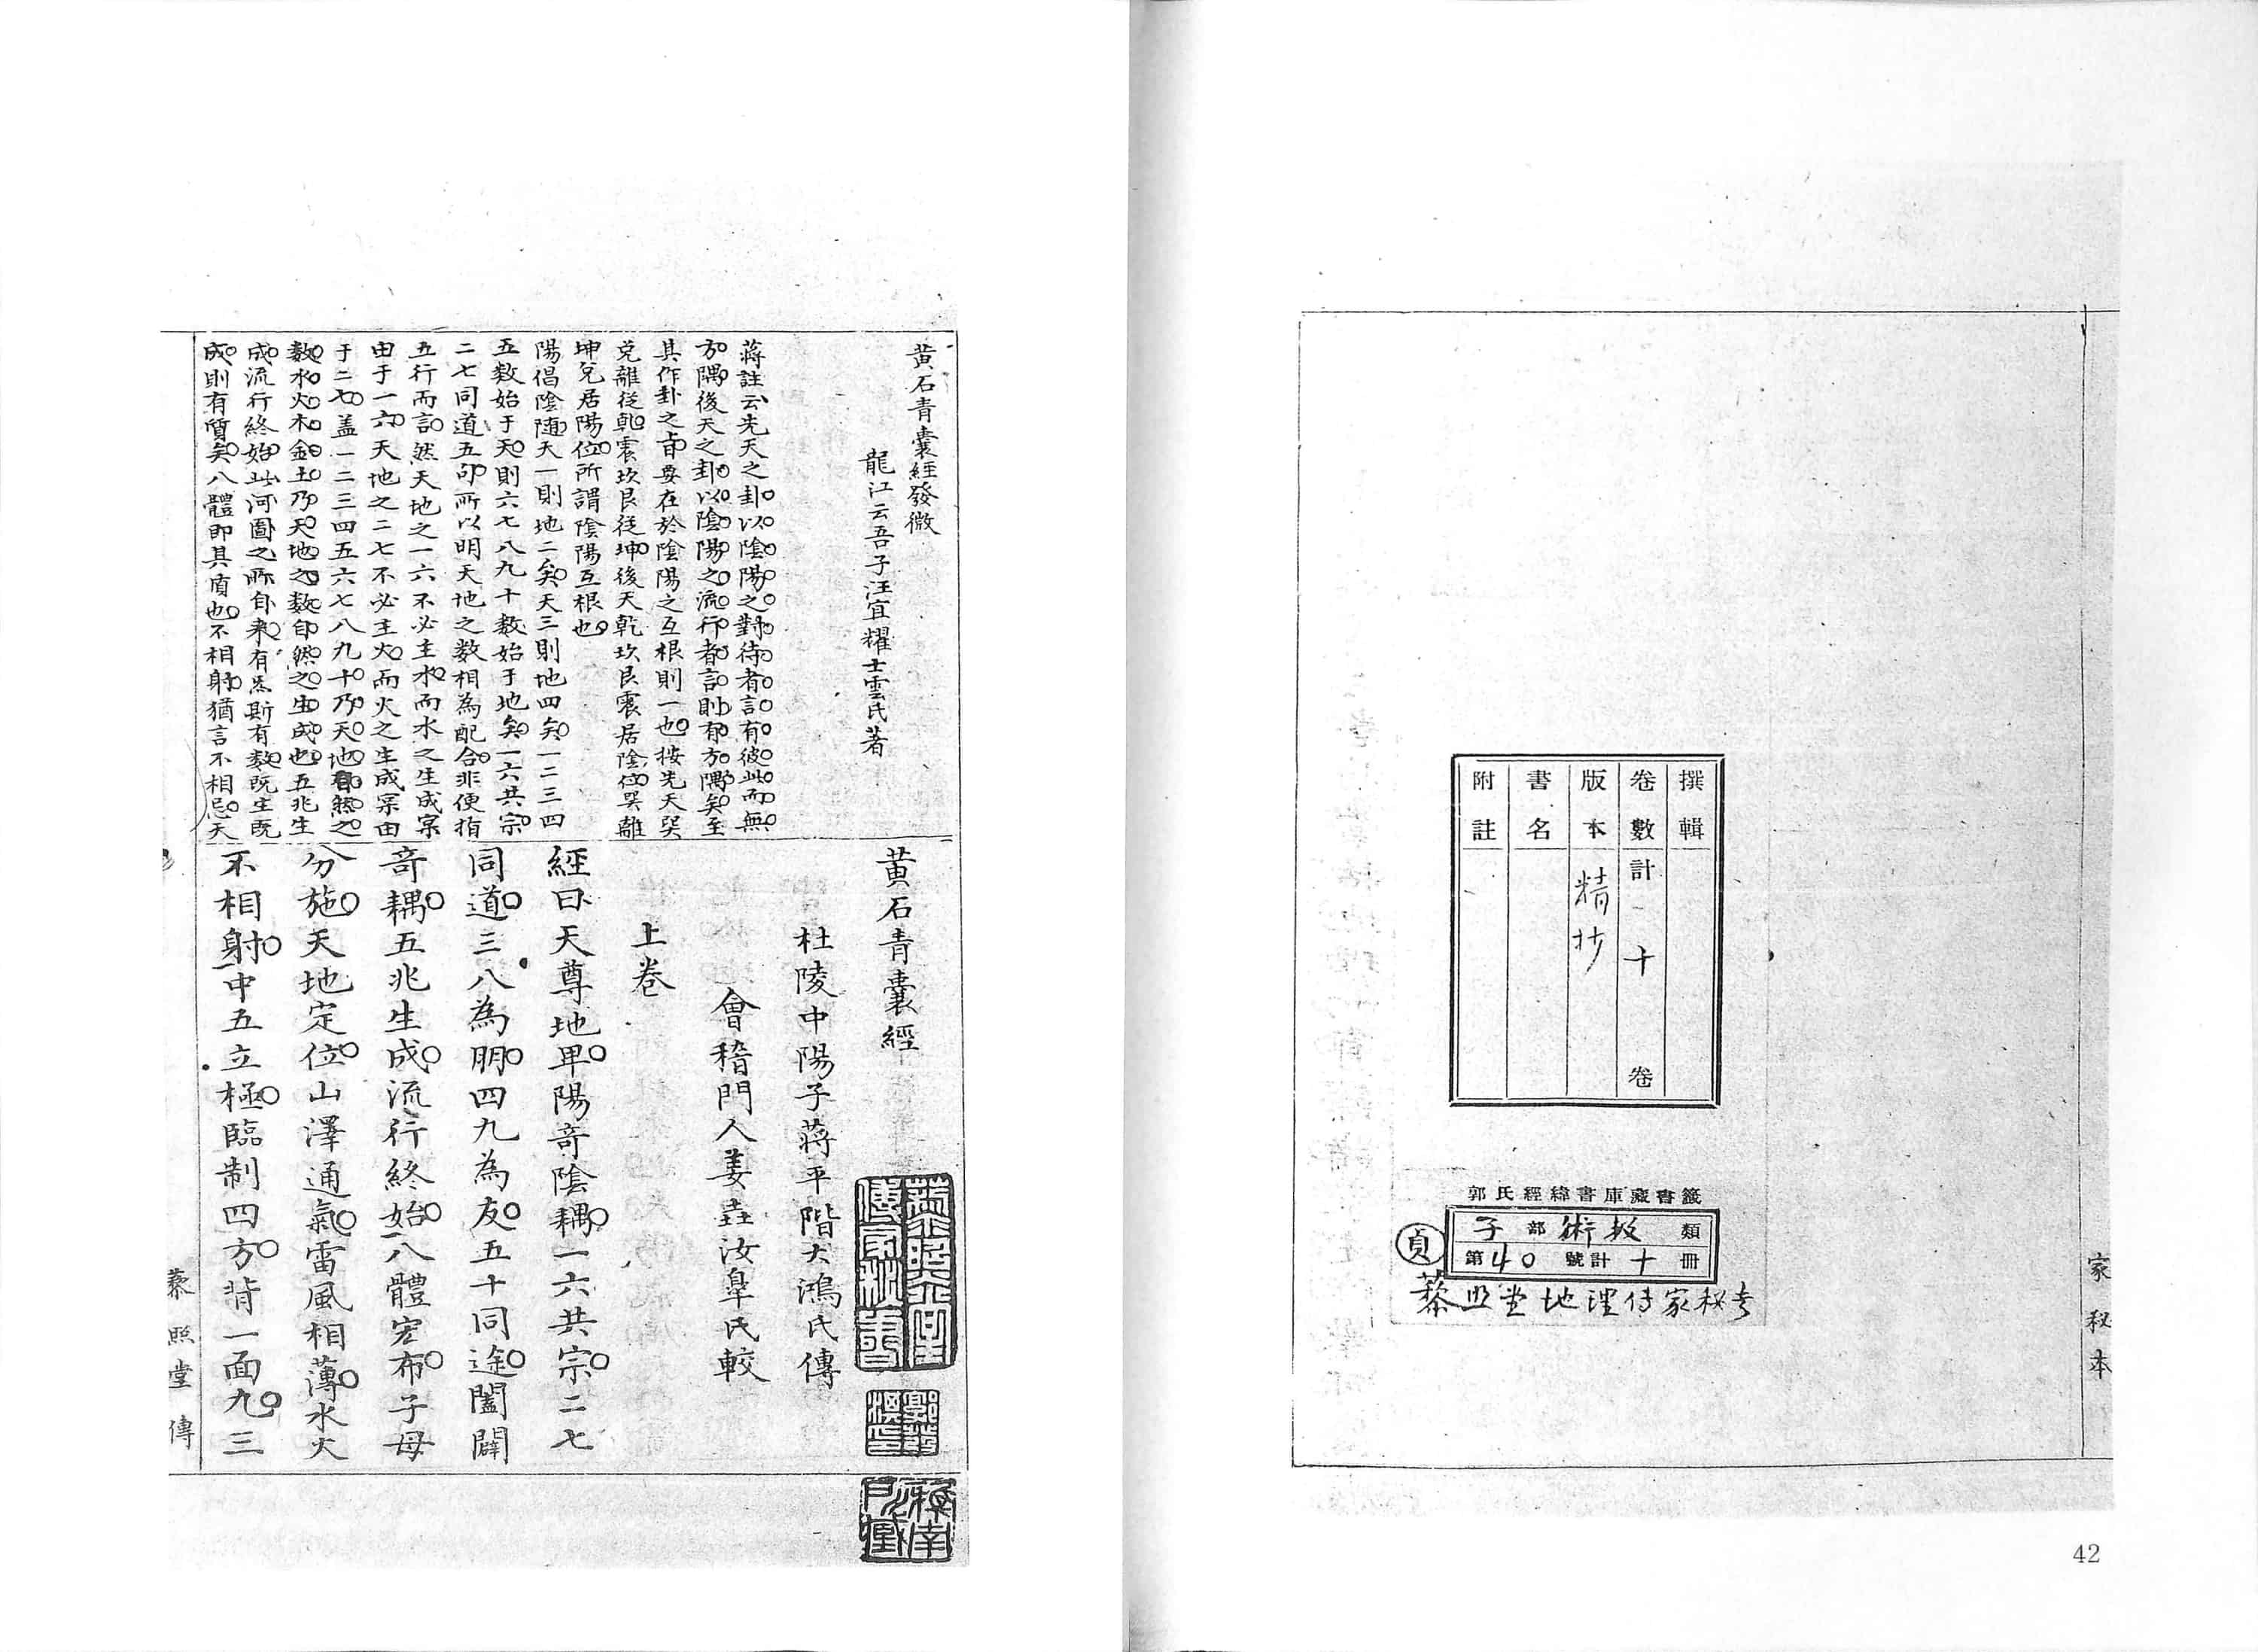 家秘本
撰輯
卷數計一十卷
版本 精抄
書名
附註
郭氏經緯書庫藏書籤
子部術数類
第40號計十冊
貞
藜照堂地理传家秘书
42
黃石青囊經發微
龍江云吾子汪宜耀士雲氏著
蔣註云先天之卦以陰陽之對待者言有彼此而無
方隅後天之卦以陰陽之流行者言則有方隅矣至
其作卦之旨要在於陰陽之互根則一也按先天巽
兌離從乾震坎艮從坤後天乾坎艮震居陰位巽離
坤兌居陽位所謂陰陽互根也
陽倡陰随天一則地二矣天三則地四矣一二三四
五数始于天則六七八九十数始于地矣一六共宗
二七同道五句所以明天地之数相為配合非便指
五行而言然天地之一六不必主水而水之生成寔
由于一六天地之二七不必主火而火之生成寔由
于二七盖一二三四五六七八九十乃天地自然之
数水火木金土乃天地之数自然之生成也五兆生
成流行終始此河圖之所自来有炁斯有数既生既
成則有質矣八體即其質也不相射猶言不相忌天
黃石青囊經
杜陵中陽子蔣平階大鴻氏傳
會稽門人姜垚汝臯氏較
上卷
經曰天尊地卑陽竒陰耦一六共宗二七
同道三八為朋四九為友五十同途闔闢
竒耦五兆生成流行終始八體宏布子母
分施天地定位山澤通氣雷風相薄水火
不相射中五立極臨制四方背一面九三
藜照堂傳